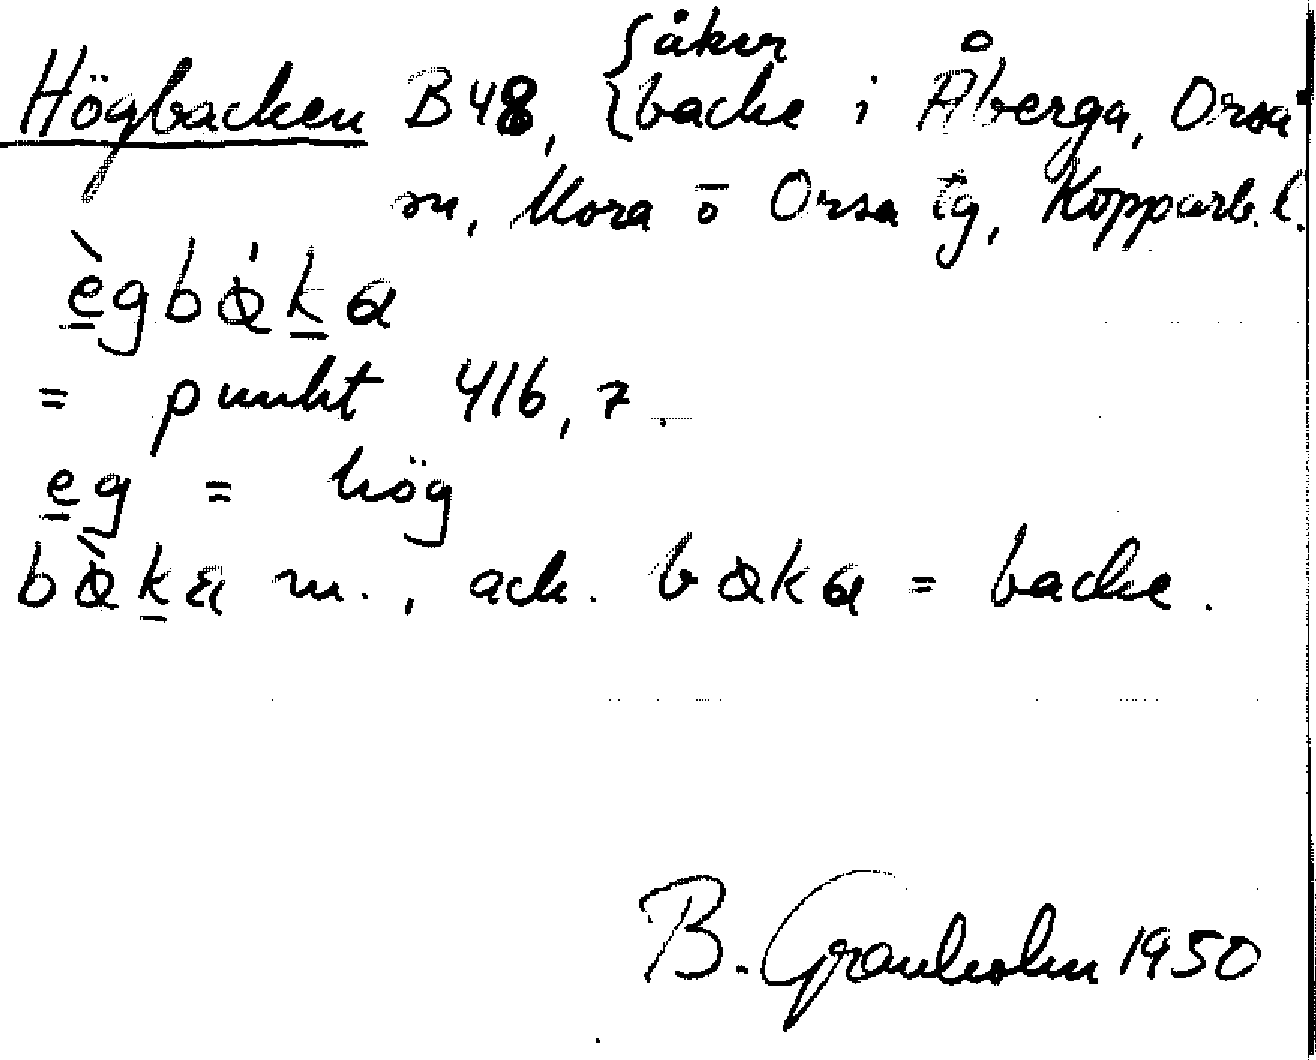 Högbacken B48, {åker
{backe i Åberga, Orsa
m, Mora o Orsa tg, Kopparb. l.
ègbákа
= punkt 416,7.
eg = hög
bàka m., ack. baka = backe.
B. Granholm 1950